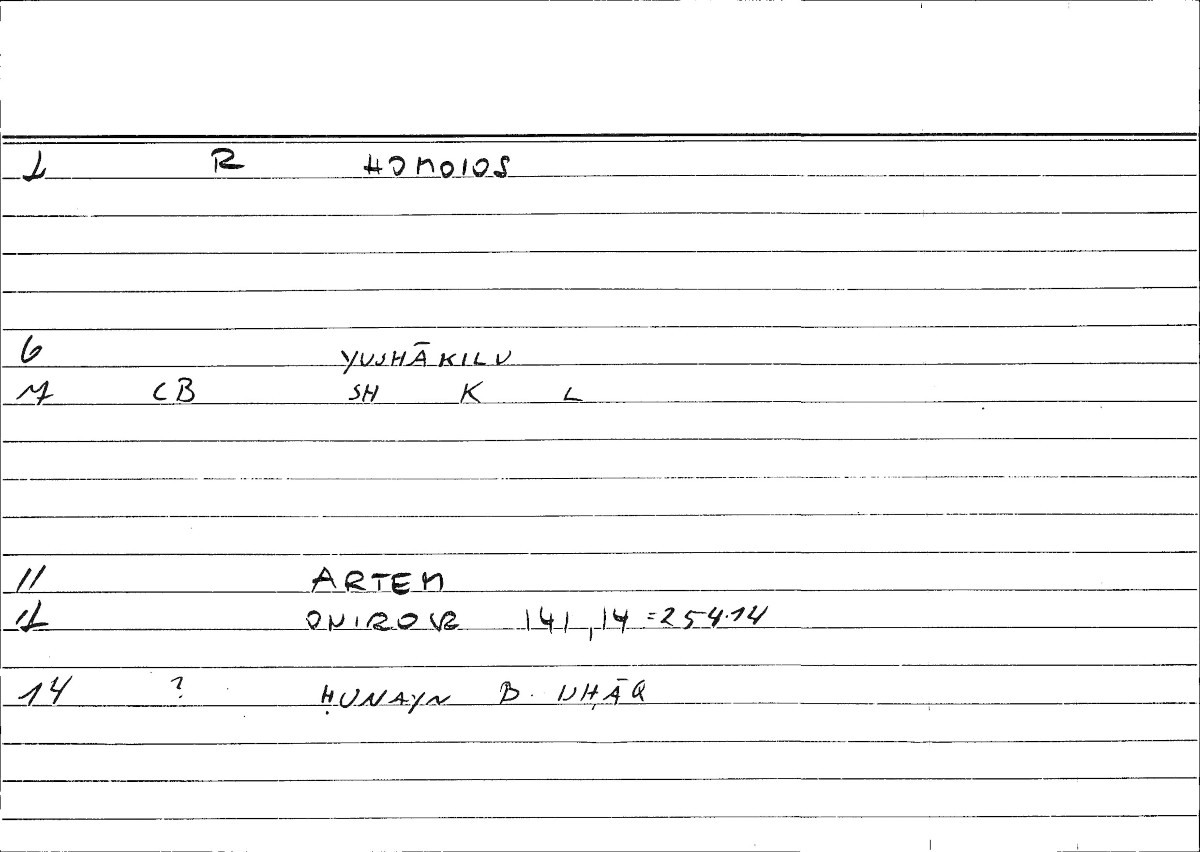 1 R HOMOIOS
6 YUSHĀKILU
7 CB SH K L
11 ARTEM
12 ONIROCR 141,14 =254.14
14 ? ḤUNAYN B. ISḤĀQ